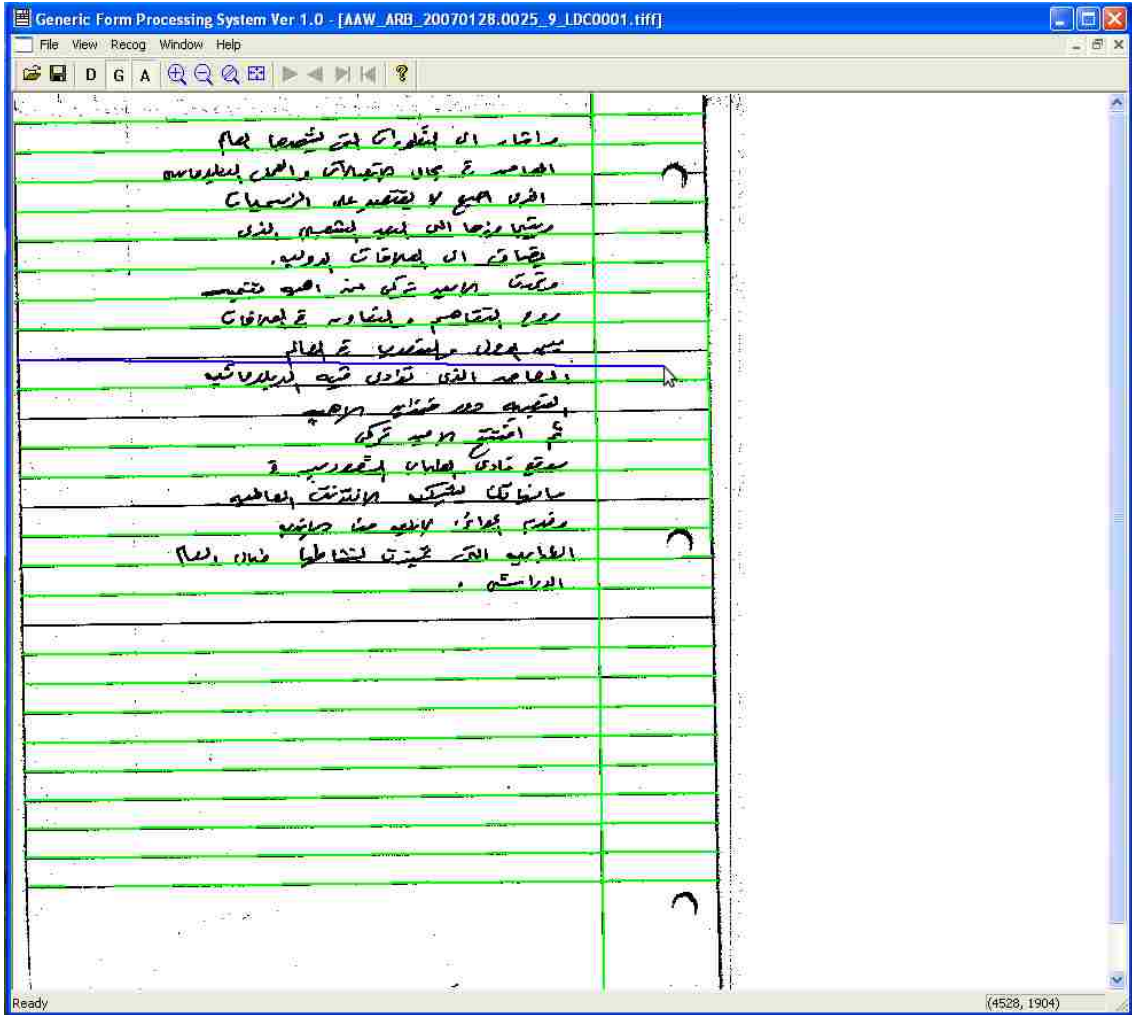 Generic Form Processing System Ver 1.0 - [AAW_ARB_20070128.0025_9_LDC0001.tiff]
File View Recog Window Help
D G A
واشار الى التطورات التي يشهدها العالم
المعاصر في مجال الاتصالات والعمل الدبلوماسي
الذي اصبح لا يقتصر على الرسميات
ويتجاوزها الى البعد الشعبي الذي
يضاف الى العلاقات الدولية.
وتحدث الامير تركي عن اهمية
روح التفاهم والتعاون في العلاقات
بين الدول والشعوب في العالم
المعاصر الذي تؤدي فيه الدبلوماسية
الشعبية دور
ثم افتتح الامير تركي
موقع نادي الطلاب السعوديين في
على الانترنت العالمية
وقدم جوائز
الطلابية التي تميزت نشاطها خلال العام
الدراسي .
Ready
(4528, 1904)